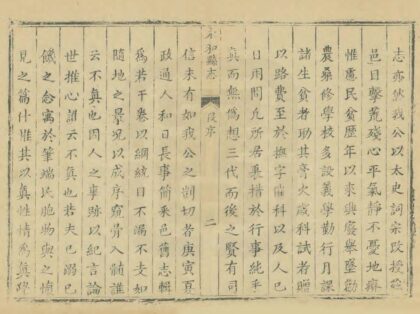 志亦然我公以太史詞宗改授
邑目擊荒殘心平氣靜不憂地瘠
惟慮民貧歷年以來興廢舉墜勸
農桑修學校多設義學勤行月課
諸生貧者助其膏火歲科試者贈
以路費至於撫字催科以及人巳
日用間凡所居業措於行事純乎
真而無偽想三代而後之賢有司
永和縣志
段序
二
信未有如我公之剴切者庚寅夏
政通人和日長事簡釆邑舊志輯
為若干卷以綱統目不漏不支如
隨地之景況以成序窺骨入髓誰
云不真也因人之事跡以紀言論
世推心誰云不真也若夫已溺已
饑之念寓於筆端民胞物與之懷
見之篇什惟其以真性情為真